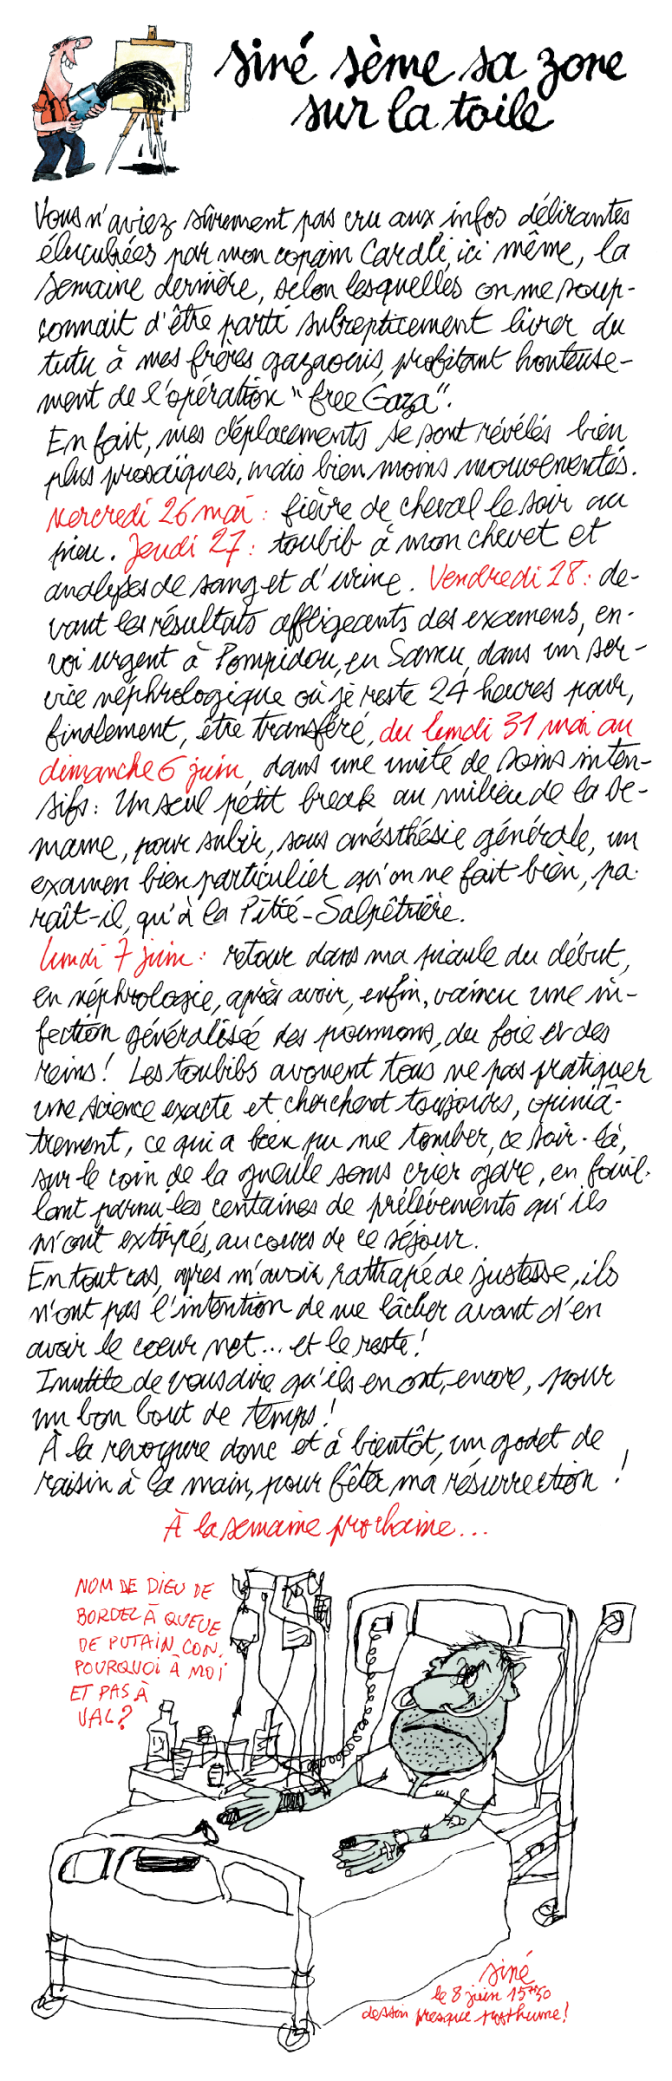 siné sème sa zone
sur la toile
Vous n'aviez sûrement pas cru aux infos délirantes
élucubrées par mon copain Cardli, ici même, la
semaine dernière, selon lesquelles on me soup-
çonnait d'être parti subrepticement livrer du
tutu à mes frères gazaouis, profitant honteuse-
ment de l'opération "free Gaza".
En fait, mes déplacements se sont révélés bien
plus prosaïques, mais bien moins mouvementés.
Mercredi 26 mai : fièvre de cheval le soir au
pieu. Jeudi 27 : toubib à mon chevet et
analyses de sang et d'urine. Vendredi 28 : de-
vant les résultats affligeants des examens, en-
voi urgent à Pompidou, en Samu, dans un ser-
vice néphrologique où je reste 24 heures pour,
finalement, être transféré, du lundi 31 mai au
dimanche 6 juin, dans une unité de soins inten-
sifs : Un seul petit break au milieu de la se-
maine, pour subir, sous anésthésie générale, un
examen bien particulier qu'on ne fait bien, pa-
raît-il, qu'à la Pitié-Salpêtrière.
Lundi 7 juin : retour dans ma piaule du début,
en néphrologie, après avoir, enfin, vaincu une in-
fection généralisée des poumons, du foie et des
reins ! Les toubibs avouent tous ne pas pratiquer
une science exacte et cherchent toujours, opiniâ-
trement, ce qui a bien pu me tomber, ce soir-là,
sur le coin de la gueule sans crier gare, en fouil-
lant parmi les centaines de prélèvements qu'ils
m'ont extirpés, au cours de ce séjour.
En tout cas, après m'avoir rattrapé de justesse, ils
n'ont pas l'intention de me lâcher avant d'en
avoir le coeur net... et le reste !
Inutile de vous dire qu'ils en ont, encore, pour
un bon bout de temps !
À la revoyure donc et à bientôt, un godet de
raisin à la main, pour fêter ma résurrection !
À la semaine prochaine...
NOM DE DIEU DE
BORDEL À QUEUE
DE PUTAIN CON,
POURQUOI À MOI
ET PAS À
VAL ?
siné
le 8 juin 15h50
dessin presque posthume !